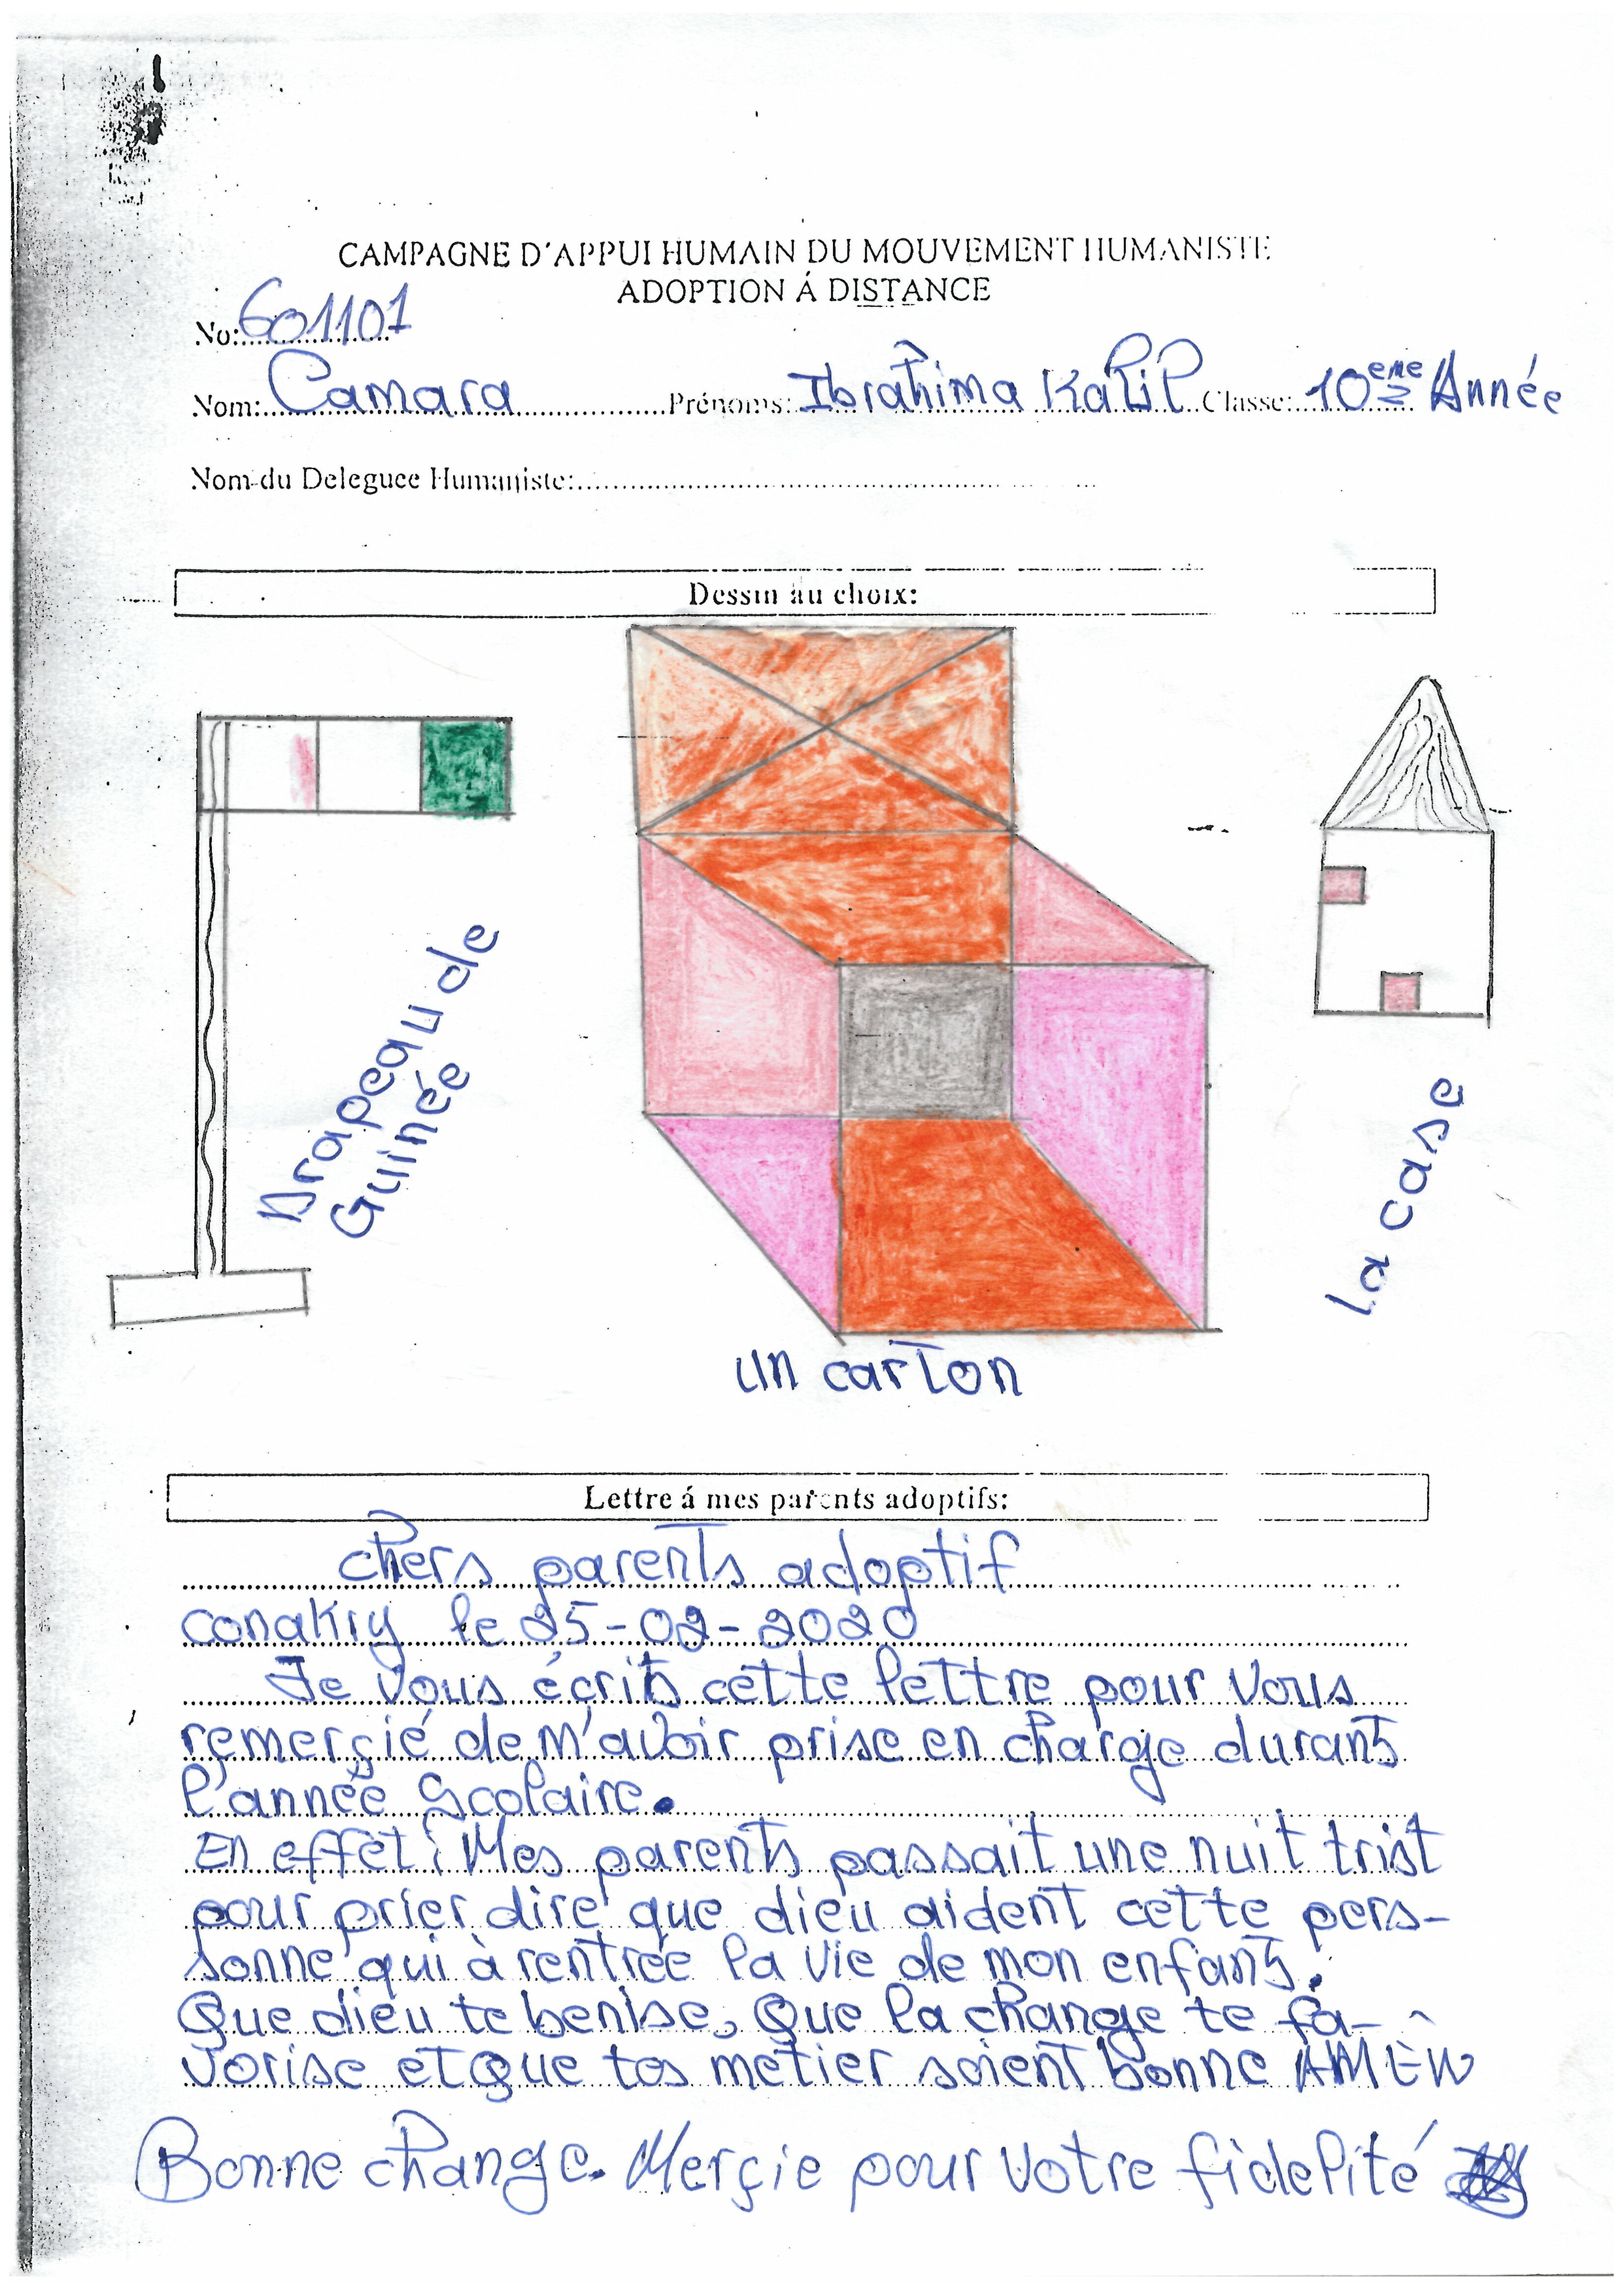 CAMPAGNE D'APPUI HUMAIN DU MOUVEMENT HUMANISTE
ADOPTION Á DISTANCE
No: 601101
Nom: Camara Prénoms: Ibrahima Kalil Classe: 10eme Année
Nom du Deleguee Humaniste:
Dessin au choix:
Drapeau de
Guinée
la case
un carton
Lettre á mes parents adoptifs:
chers parents adoptif
conakry le 25-02-2020
Je vous écrits cette lettre pour vous
remerçié de m'avoir prise en charge durant
l'année Scolaire.
En effet! Mes parents passait une nuit trist
pour prier dire que dieu aident cette pers-
sonne qui à rentrée la vie de mon enfants.
Que dieu te benise, Que la change te fa-
vorise et que tos metier soient bonne AMEN
Bonne change. Merçie pour votre fidelité